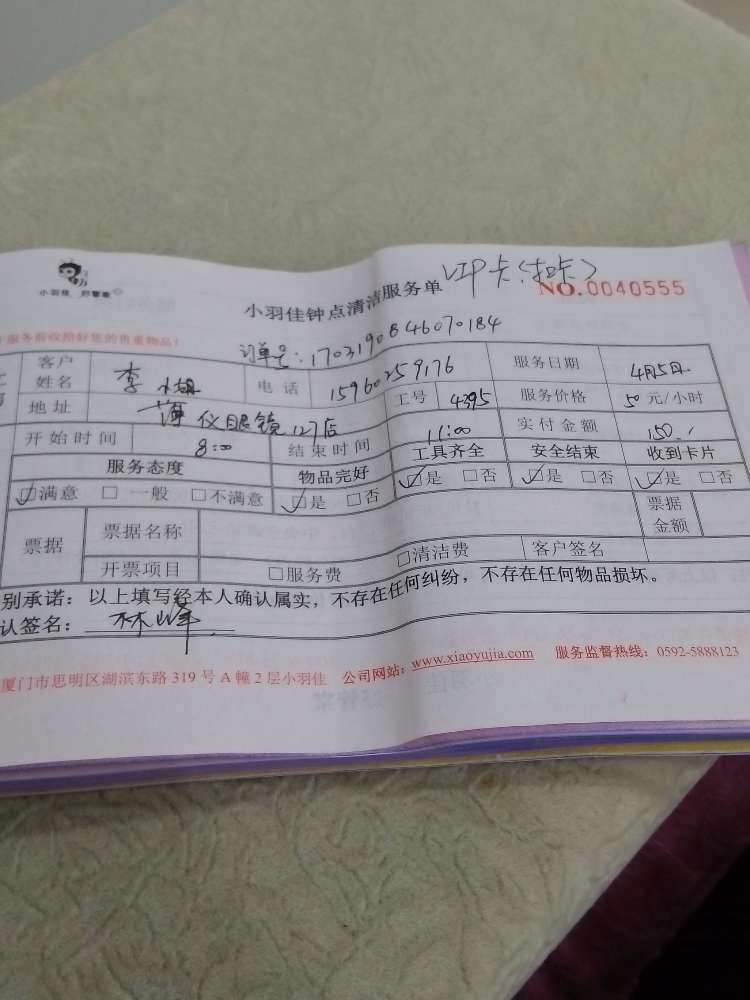 小羽佳 好管家
小羽佳钟点清洁服务单 VIP卡(扣卡)
NO.0040555
服务前收拾好您的贵重物品!
订单号:1703190846070184
客户姓名 李小姐 电话 15960259176 服务日期 4月5日
地址 仪眼镜127店 工号 4395 服务价格 50元/小时
开始时间 8:00 结束时间 11:00 实付金额 150.
服务态度 物品完好 工具齐全 安全结束 收到卡片
☑满意 □一般 □不满意 ☑是 □否 ☑是 □否 ☑是 □否 ☑是 □否
票据 票据名称 票据金额
开票项目 □服务费 □清洁费 客户签名
别承诺:以上填写经本人确认属实,不存在任何纠纷,不存在任何物品损坏。
认签名:林峰
厦门市思明区湖滨东路319号A幢2层小羽佳 公司网站:www.xiaoyujia.com 服务监督热线:0592-5888123